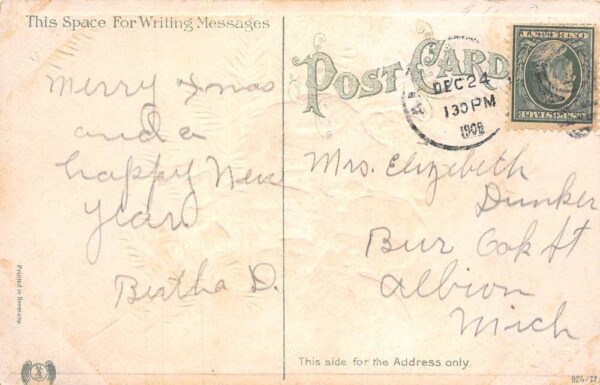 This Space For Writing Messages
Merry Xmas
and a
happy New
year.
Bertha D.
POST CARD
DEC 24
1 30 PM
ONE CENT
Mrs. Elizebeth
Dunker
Bur Oak St
Albion
Mich
This side for the Address only
Printed in Germany.